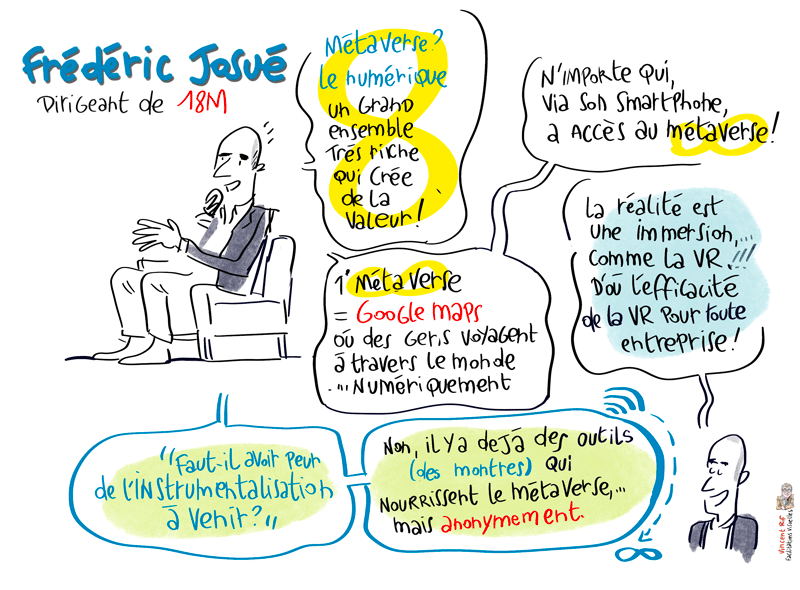 Frédéric Josué
Dirigeant de 18M
Métaverse?
le numérique
un grand
ensemble
Très riche
qui crée
de la
valeur!
N'importe qui,
via son smartphone,
a accès au métaverse!
1er Métaverse
= Google maps
où des gens voyagent
à travers le monde
... numériquement
La réalité est
une immersion,...
comme la VR...
D'où l'efficacité
de la VR pour toute
entreprise!
"Faut-il avoir peur
de l'instrumentalisation
à venir?"
Non, il y a dejà des outils
(des montres) qui
nourrissent le métaverse,...
mais anonymement.
Vincent Rif
Facilitations visuelles